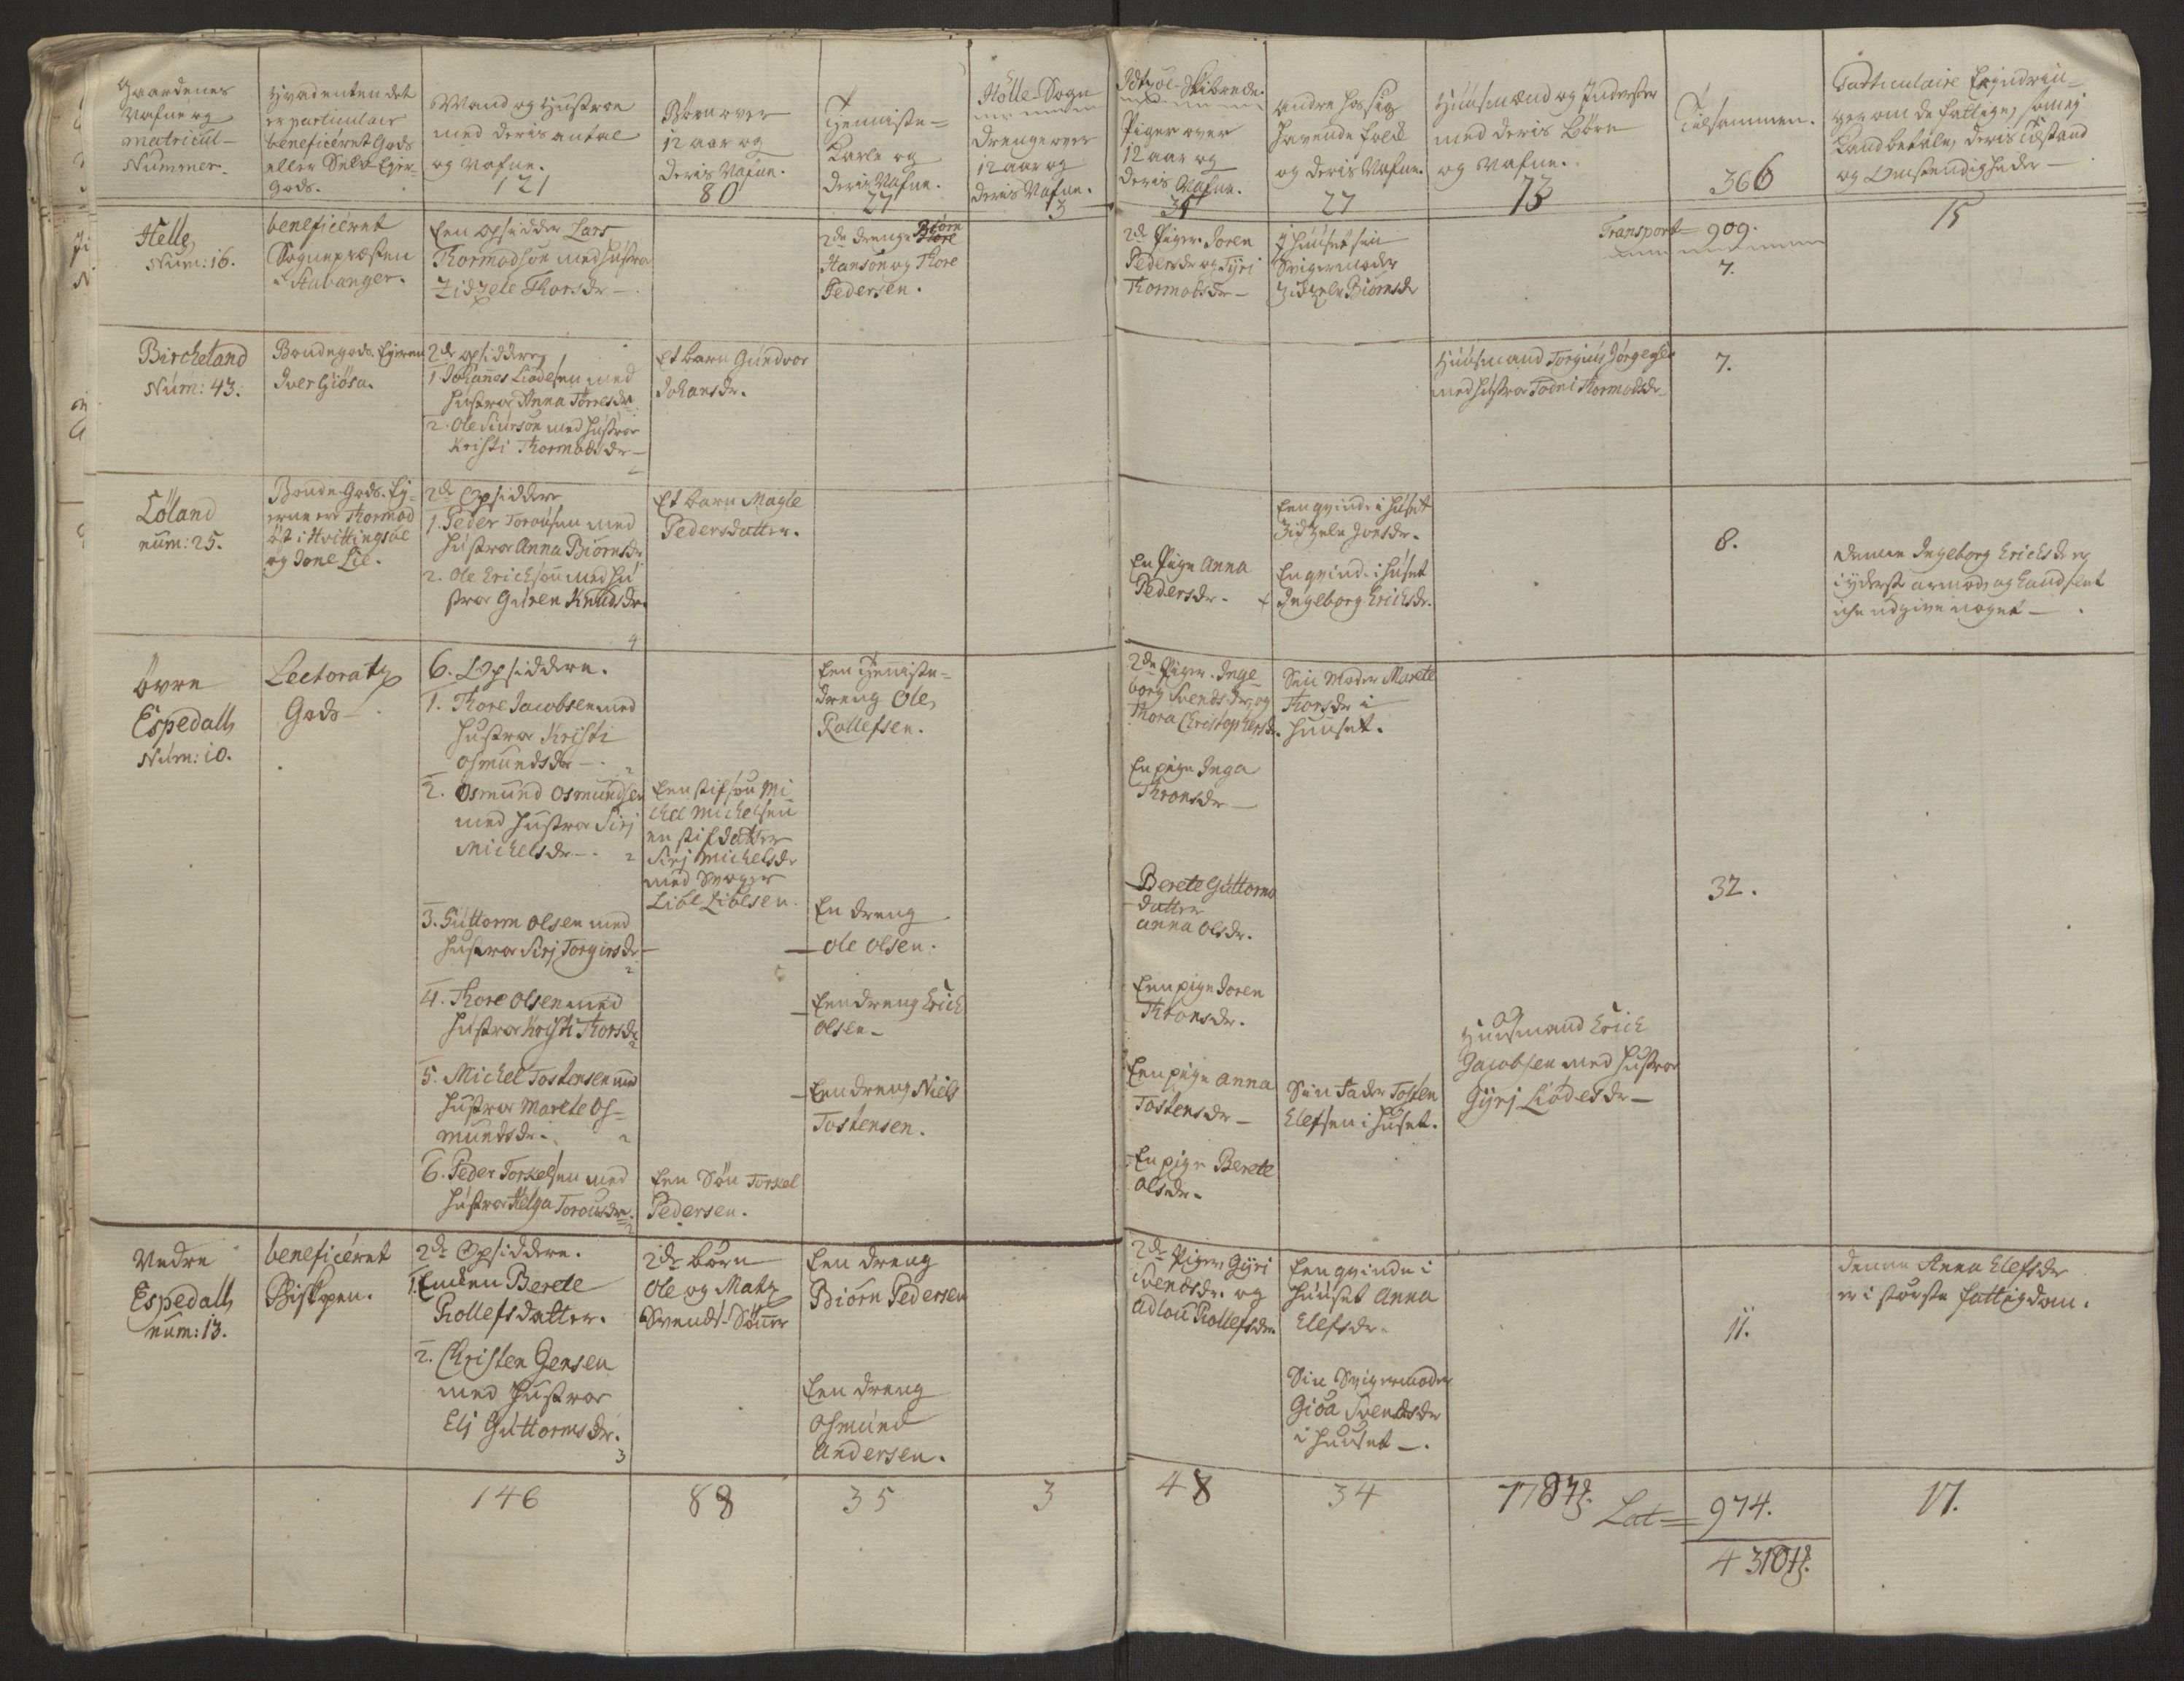 Gaardenes
Nafne og
matricul-
Nummer.
Hvadenten det
er particulair
beneficéret Gods
eller Selv-Ejer-
Gods.
Mand og Hustroe
med deris antal
og Nafne.
121
Børn over
12 aar og
deris Nafne.
80
Tienniste-
Karle og
deris Nafne.
27
Holle-Sogn
Drenge over
12 aar og
deris Nafne.
3
Idtzøe-Skibrede.
Piger over
12 aar og
deris Nafne.
andre hos sig
havende folck
og deris Nafne.
27
Huusmænd og Inderster
med deris Børn
og Nafne.
73
Tilsammen.
366
Particulaire Erindrin-
ger om de fattige, som ej
kand betale, deris tilstand
og Omstendigheder
15
Transport 909.
Helle,
Num: 16.
beneficéret
Sognepræsten
i Stavanger.
Een opsidder Lars
Thormodsøn med hustroe
Zidzele Thorsdr
2de drenge Biørn
Hansøn og Thore
Pedersen.
2de Piger. Joren
Pedersdr og Tyri
Thormodsdr
I huuset sin
Svigermoder
Zidzele Biørnsdr
7.
Bircheland
Num: 43.
Bondegods. Eyeren
Iver Giøsa.
2de opsiddere,
1 Johannes Liødesen med
hustroe Anna Torresdr
2. Ole Siursøn med hustroe
Kristi Thormodsdr
Et barn Gundvor
Johansdr.
Huusmand Torgiuls Jørgensen
med hustroe Todni Thormodsdr
7.
Løland
num: 25.
Bonde Gods. Ey-
erne er Thormod
øst i Hvittingsøe
og Jone Lie.
2de Opsiddere
1. Peder Torousen med
hustroe Anna Biørnsdr
2. Ole Erichsøn med hu
stroe Guren Knudsdr.
4
Et barn Magle
Pedersdatter.
En Pige Anna
Pedersdr.
Een qvinde i huset
Zidzele Jonsdr.
En qvinde i huset
Ingeborg Erichsdr.
8.
Denne Ingeborg Erichsdr er
i yderste armod, og kand slet
iche udgive noget
Øvre
Espedall,
Num: 10.
Lectoratz
Gods
6. Opsiddere.
1. Thore Jacobsen med
hustroe Kristi
Osmundsdr
2
2. Osmund Osmundsen
med hustroe Sirj
Michelsdr
2
Een stifsøn Mi
chel Michelsen
en stifdatter
Sirj Michelsdr
med Svoger
3. Guttorm Olsen med
hustroe Sirj Torgirsdr
2
4. Thore Olsen med
hustroe Kristi Thorsdr
2
5. Michel Tostensen med
hustroe Marete Os-
mundsdr.
2
6. Peder Torkelsen med
hustroe Helga Torousdr.
2
Een Søn Torkel
Pedersen.
Een Tieniste-
dreng Ole,
Rollefsen.
En dreng
Ole Olsen.
Een dreng Erich
Olsen
Een dreng Niels
Tostensen.
2de Piger. Inge
borg Svendsdr, og
Thora Christophersdr.
En pige Inga
Thronsdr
Berete Guttorms
datter
Anna Olsdr.
Een pige Joren
Thronsdr.
Een pige Anna
Tostensdr
En pige Berete
Olsdr.
Sin Moder Marete
Thorsdr i
huuset.
Sin Fader Tosten
Elefsen i huset.
Huusmand Erich
Jacobsen med hustroe
Gyrj Liødesdr
32.
Nedre
Espedall,
num: 13.
beneficéret
Biskopen.
2de Opsiddere.
1. Enken Berete
Rollefsdatter.
2. Christen Jensen
med hustroe
Elj Guttormsdr.
3
2de børn
Ole og Matz
Svends-Sønner
Een dreng
Biørn Pedersen
Een dreng
Osmund
Andersen.
2de Piger Gyri
Svendsdr. og
Adlou Rollefsdr.
Een qvinde i
huuset Anna
Elefsdr.
Sin Svigermoder
Gioa Svendsdr
i huuset
11.
Denne Anna Elefsdr
er i største fattigdom.
146
88
35
3
48
34
Lat 974.
17.